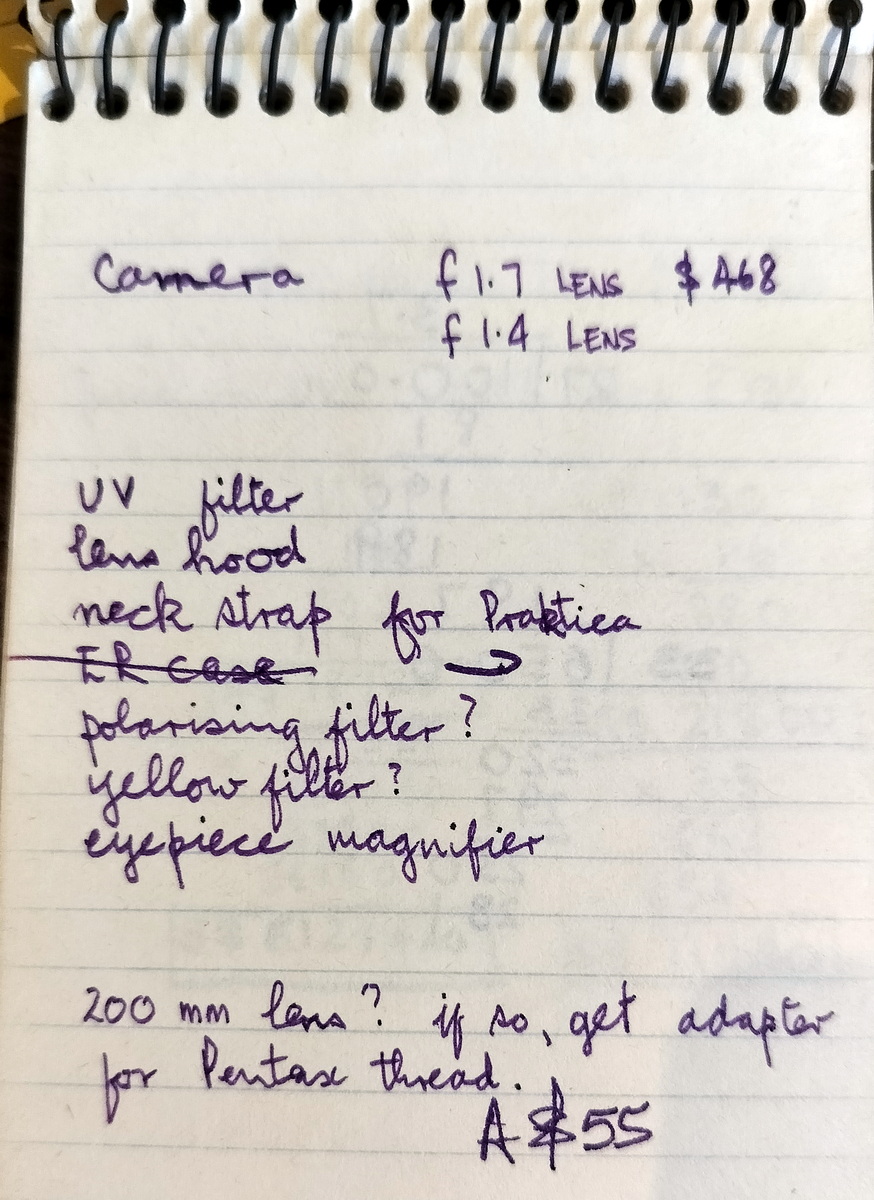 Camera f 1.7 LENS $ 468
f 1.4 LENS
UV filter
lens hood
neck strap for Praktica
ER case →
polarising filter?
yellow filter?
eyepiece magnifier
200 mm lens? if so, get adapter
for Pentax thread.
A$55